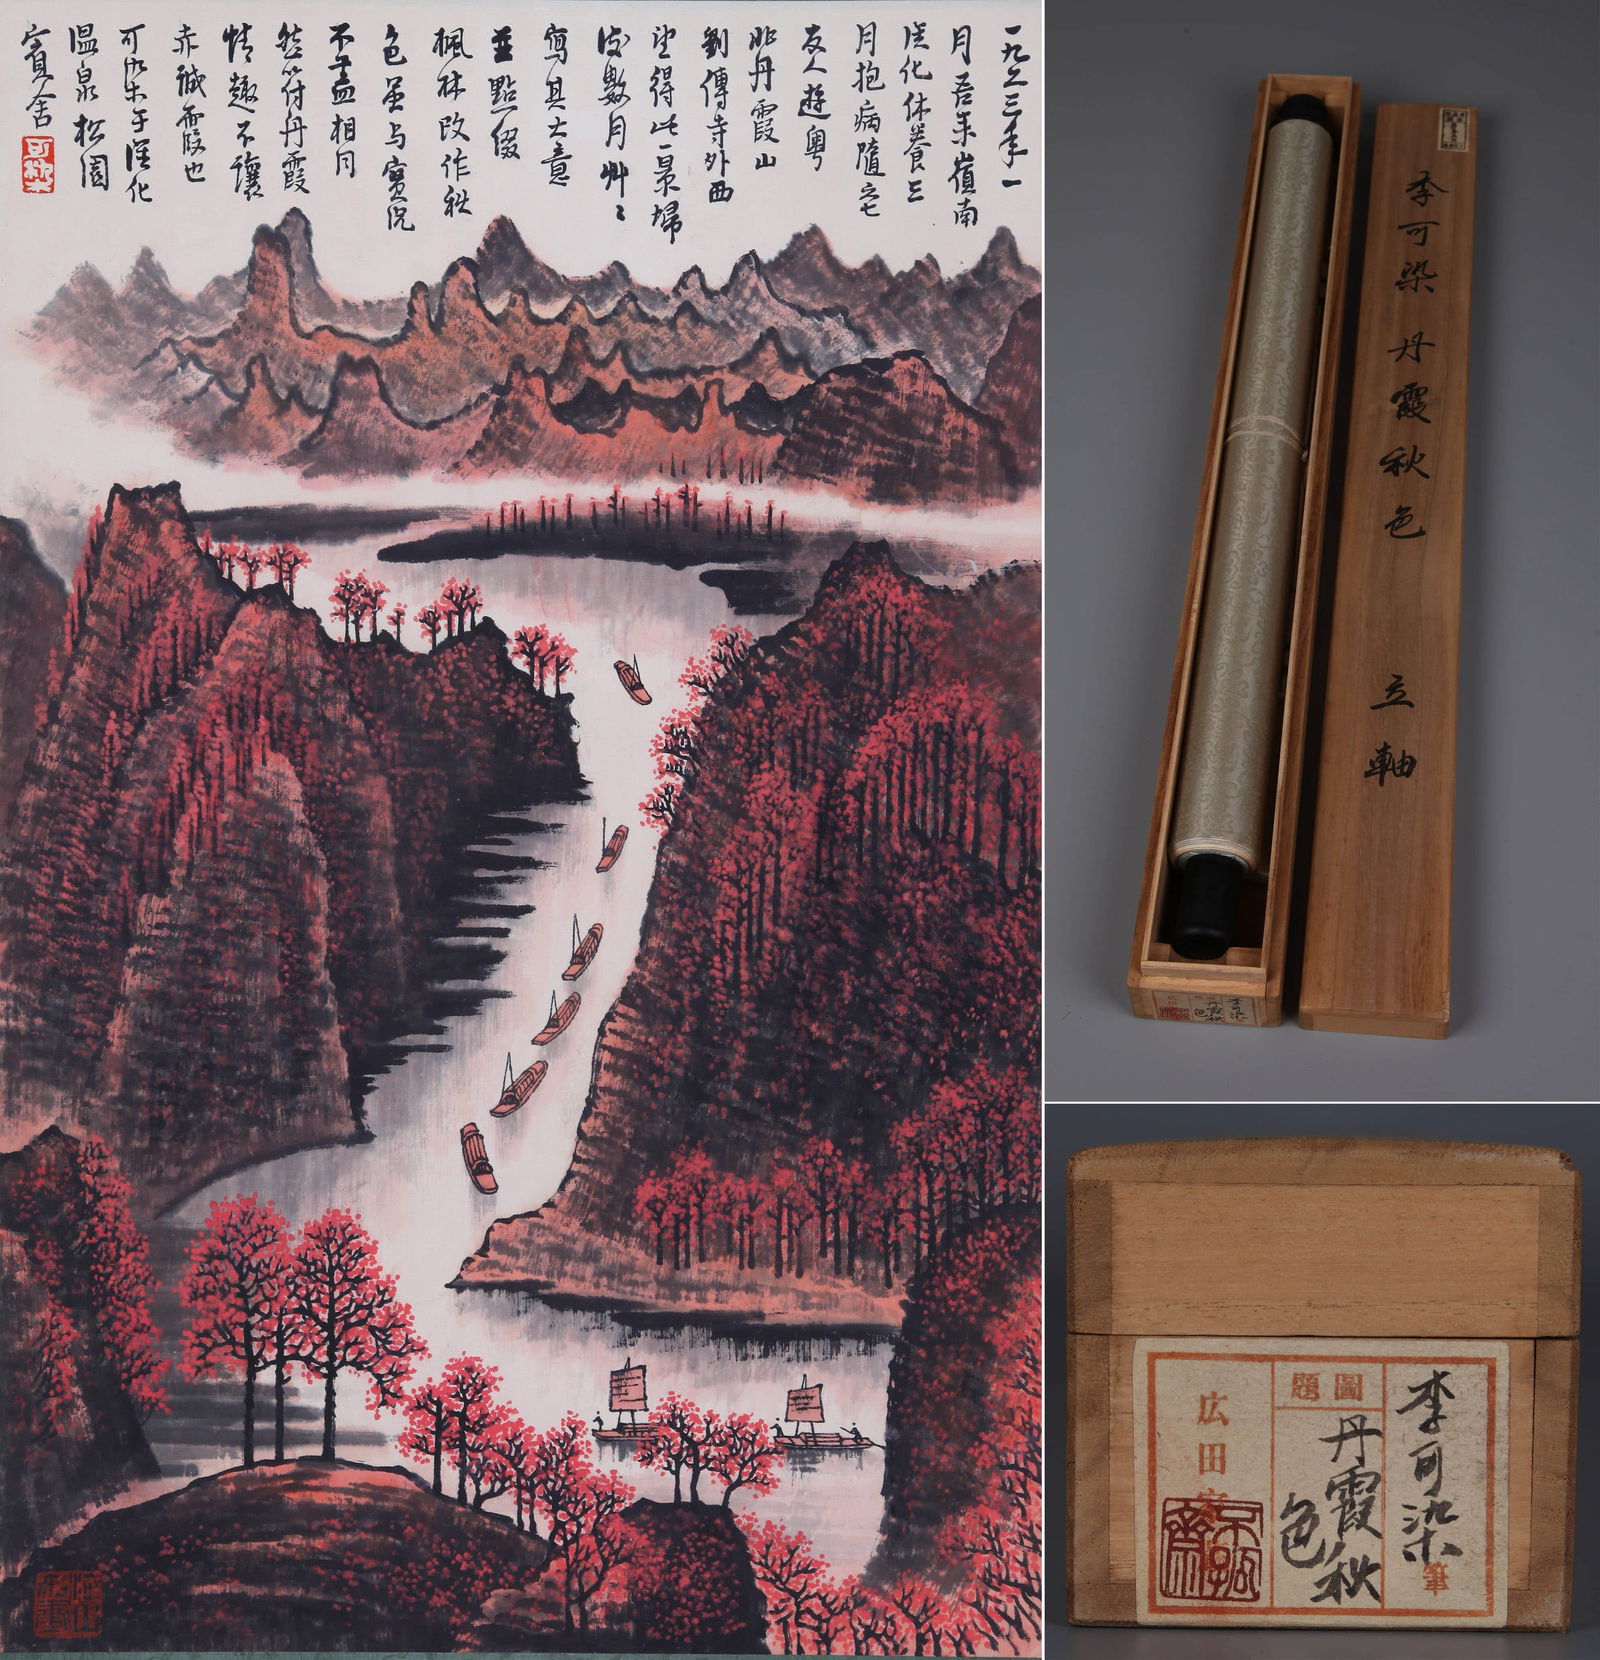 一九六三年一
月吾来嶺南
從化休養三
月抱病隨七
友人遊粤
北丹霞山
劉傳寺外西
望得此一景埽
後數月艸々
寫其大意
並點綴
楓林改作秋
色虽与實况
不盡相同
然符丹霞
情趣不讓
赤城霞也
可染于從化
温泉松園
賓舍
可染
李可染 丹霞秋色 立軸
李可染
丹霞秋
色
題圖
李可染筆
丹霞秋
色
広田家